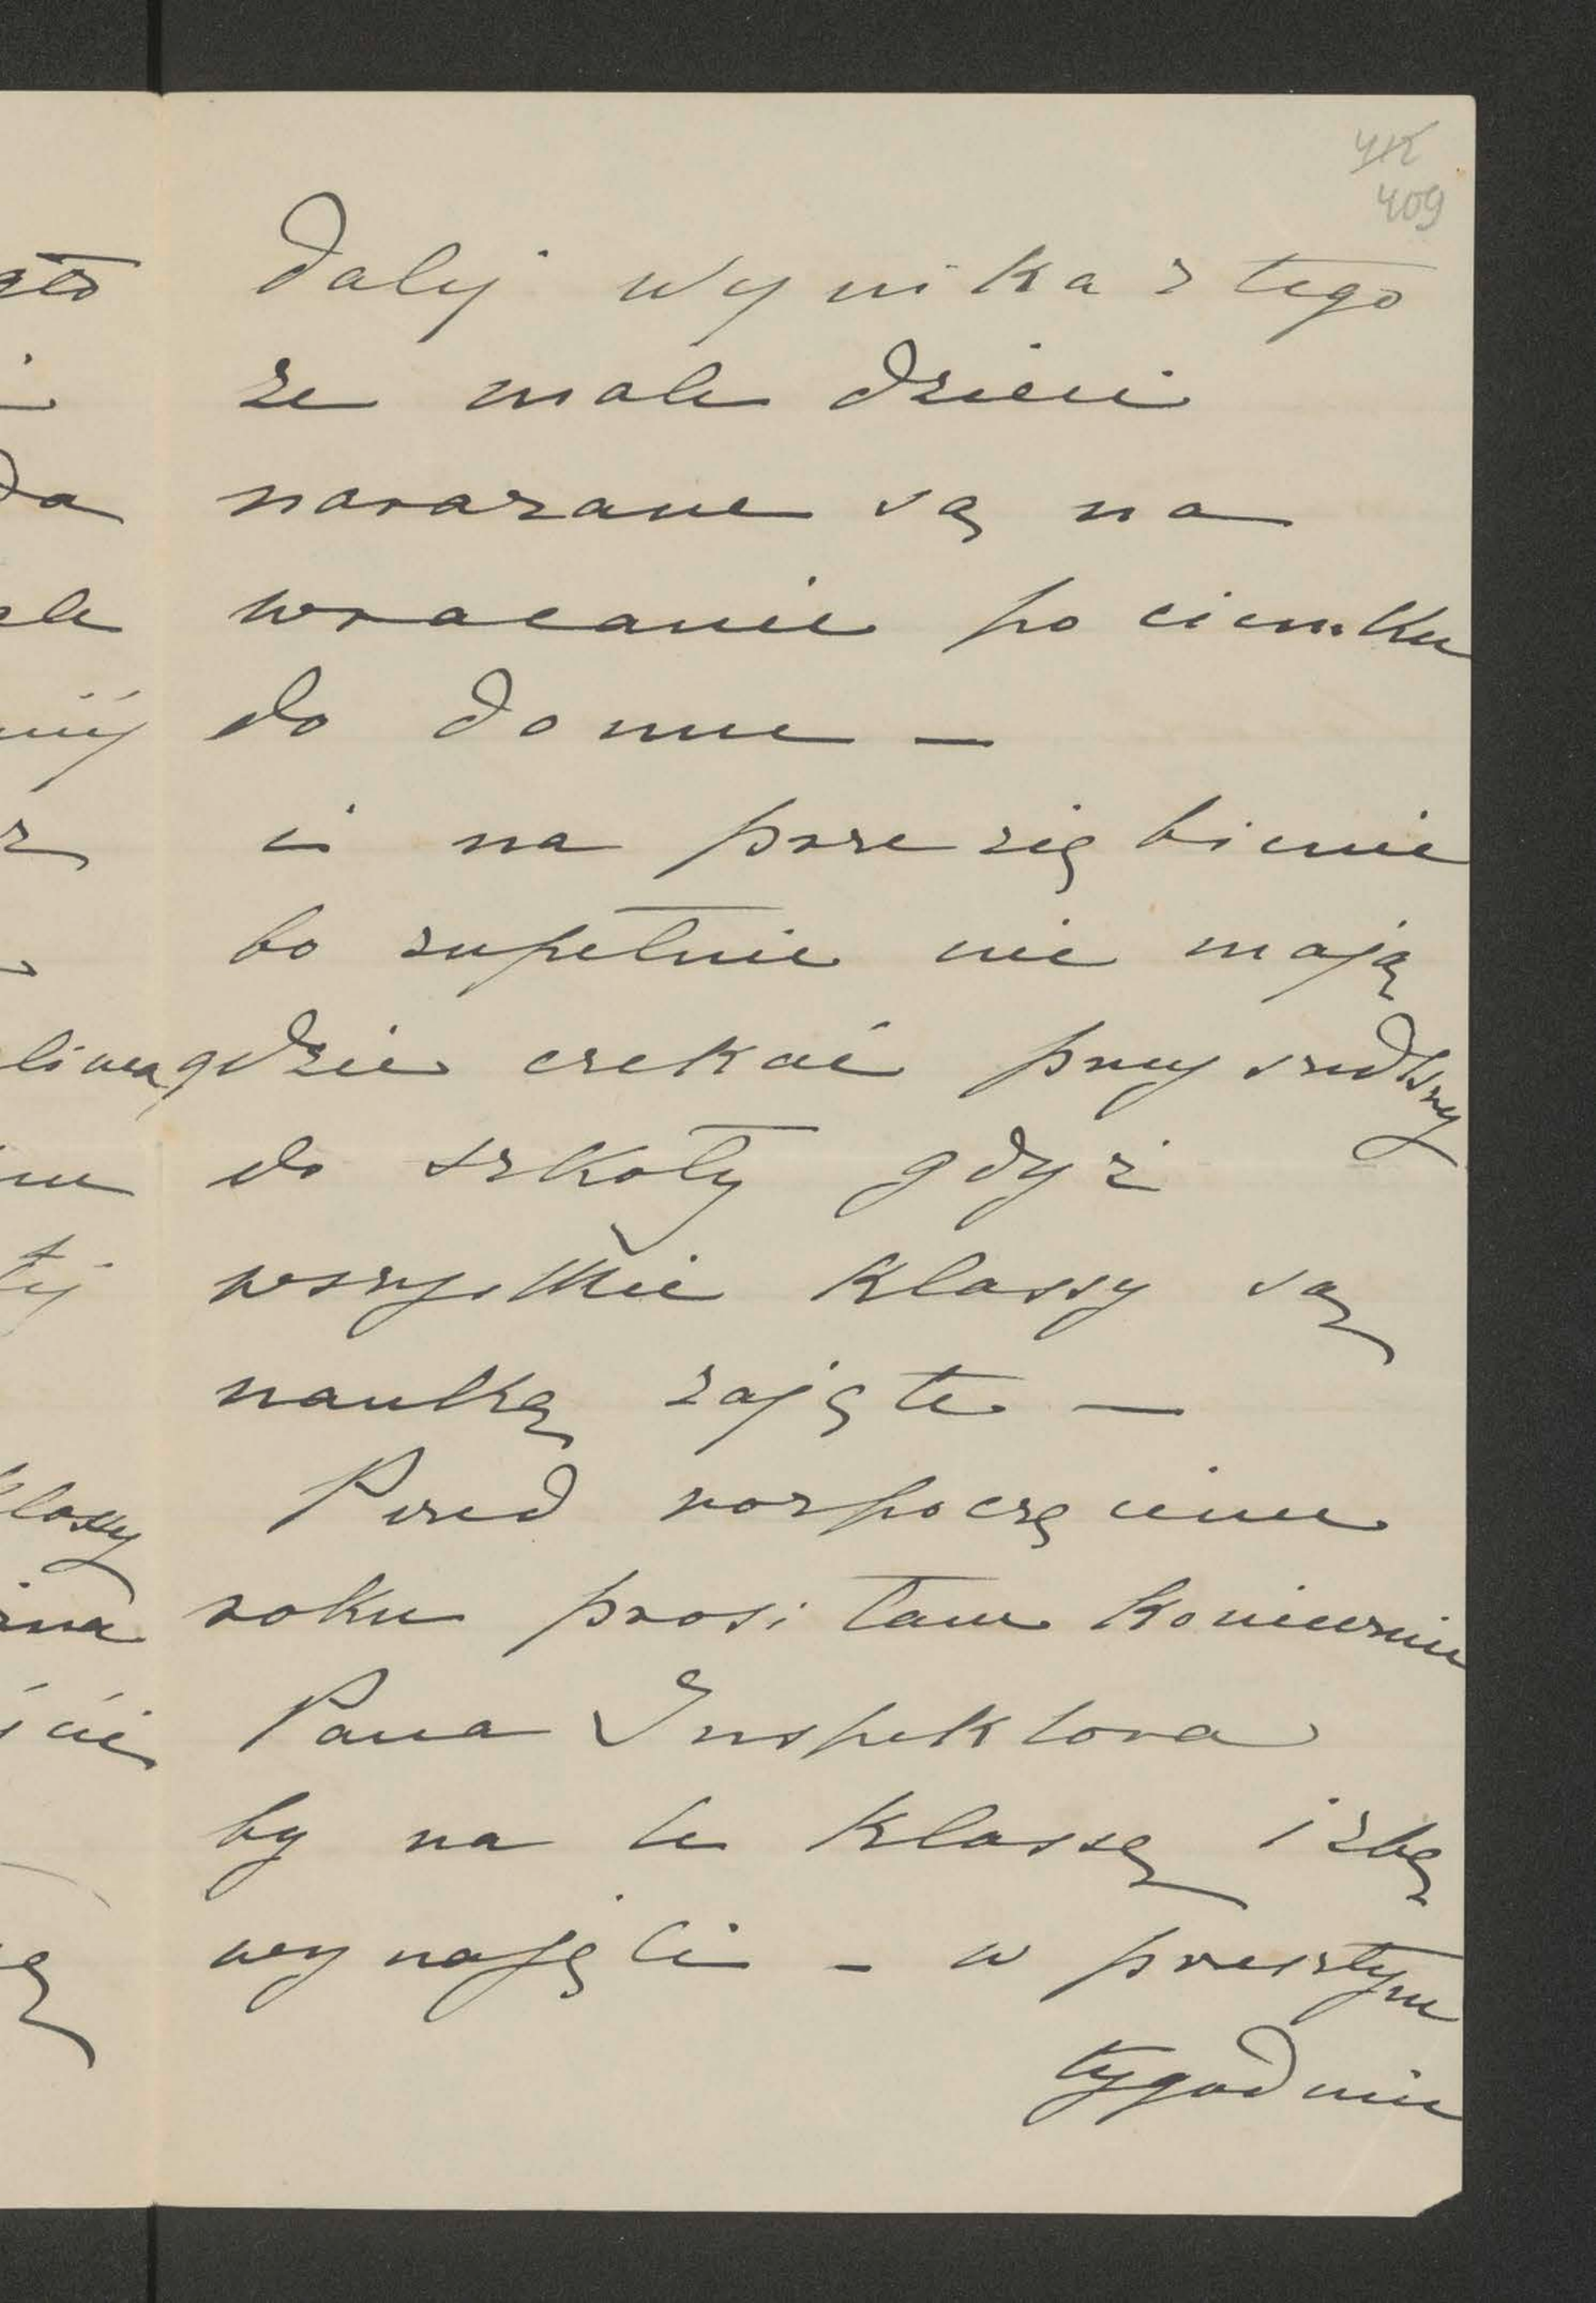 412
409
dalej wynika z tego
ze małe dzieci
narazane są na
wracanie po ciemku
do domu –
i na przeziębienie
bo zupełnie nie mają
gdzie czekać przyszedłszy
do szkoły gdyż
wszystkie klassy są
nauką zajęte –
Przed rozpoczęciem
roku prosiłam koniecznie
Pana Inspektora
by na te klassę izbę
wynajęli – w przeszłym
tygodniu